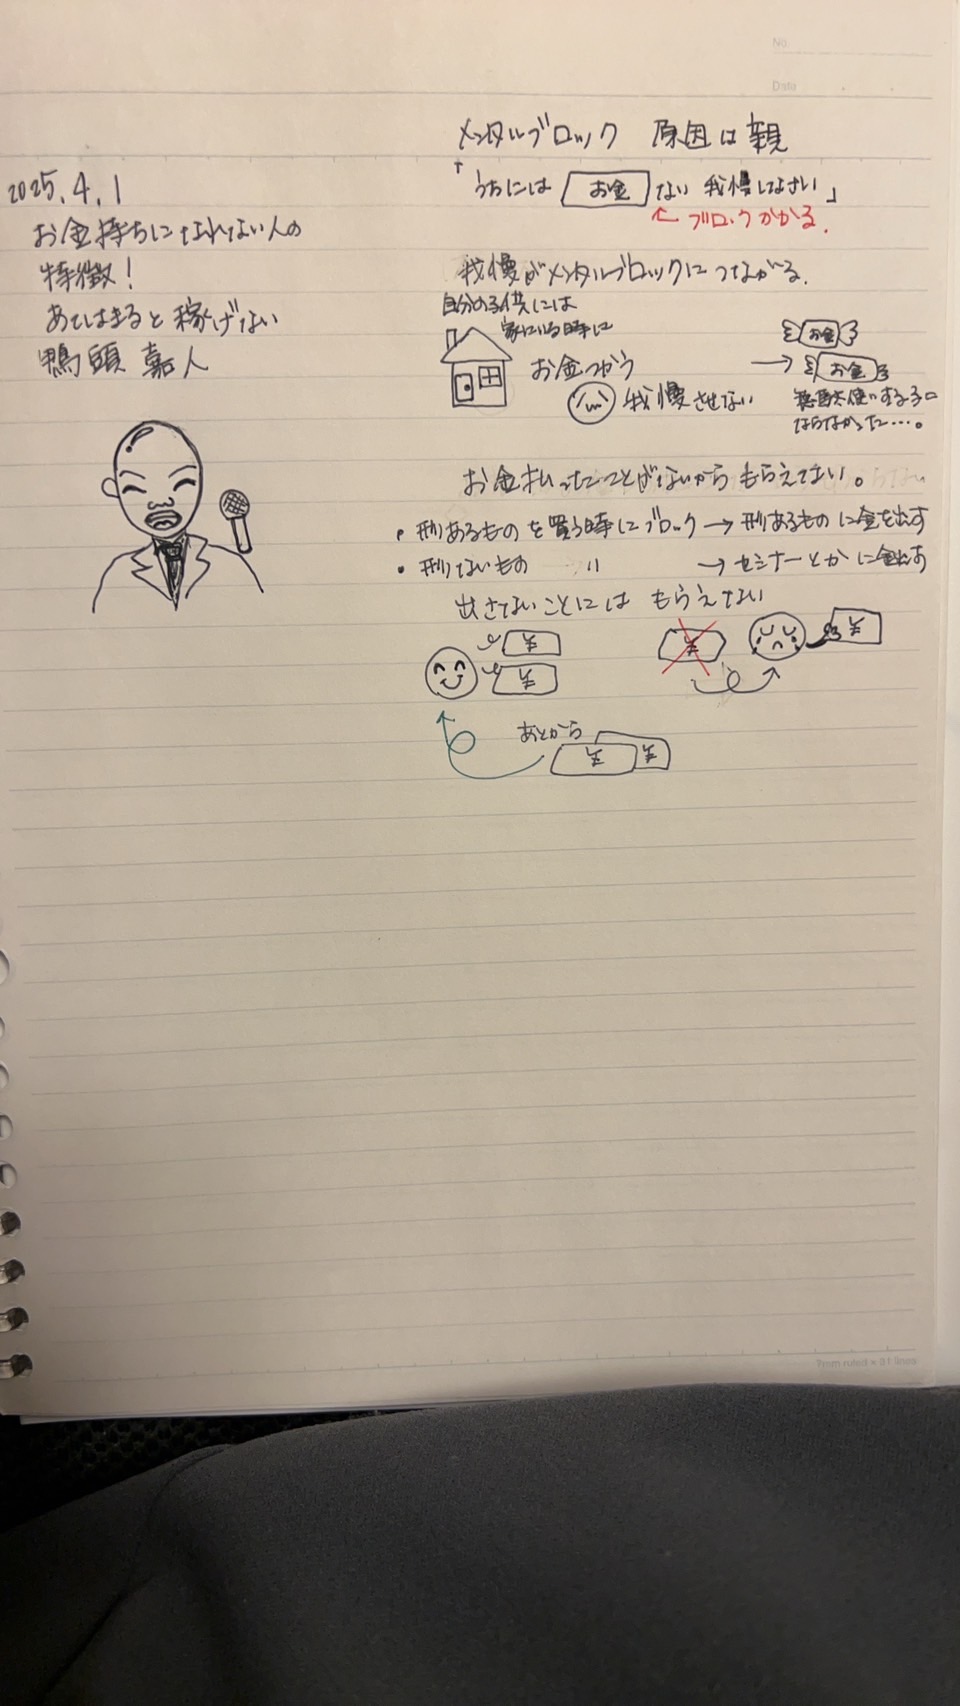 No.
Date
2025.4.1
お金持ちになれない人の
特徴！
あてはまると稼げない
鴨頭 嘉人
メンタルブロック 原因は親
「うちには お金 ない 我慢しなさい」
← ブロックかかる.
我慢がメンタルブロックにつながる.
自分の子供には
家にいる時に
お金つかう
我慢させない
→
お金
お金
無駄使いする子に
ならなかった…。
お金払ったことがないからもらえてない。
・形あるものを買う時にブロック → 形あるものに金を出す
・形ないもの 〃 → セミナーとかに金出す
出さないことには もらえない
¥
¥
¥
¥
あとから
¥ ¥
7mm ruled × 31 lines